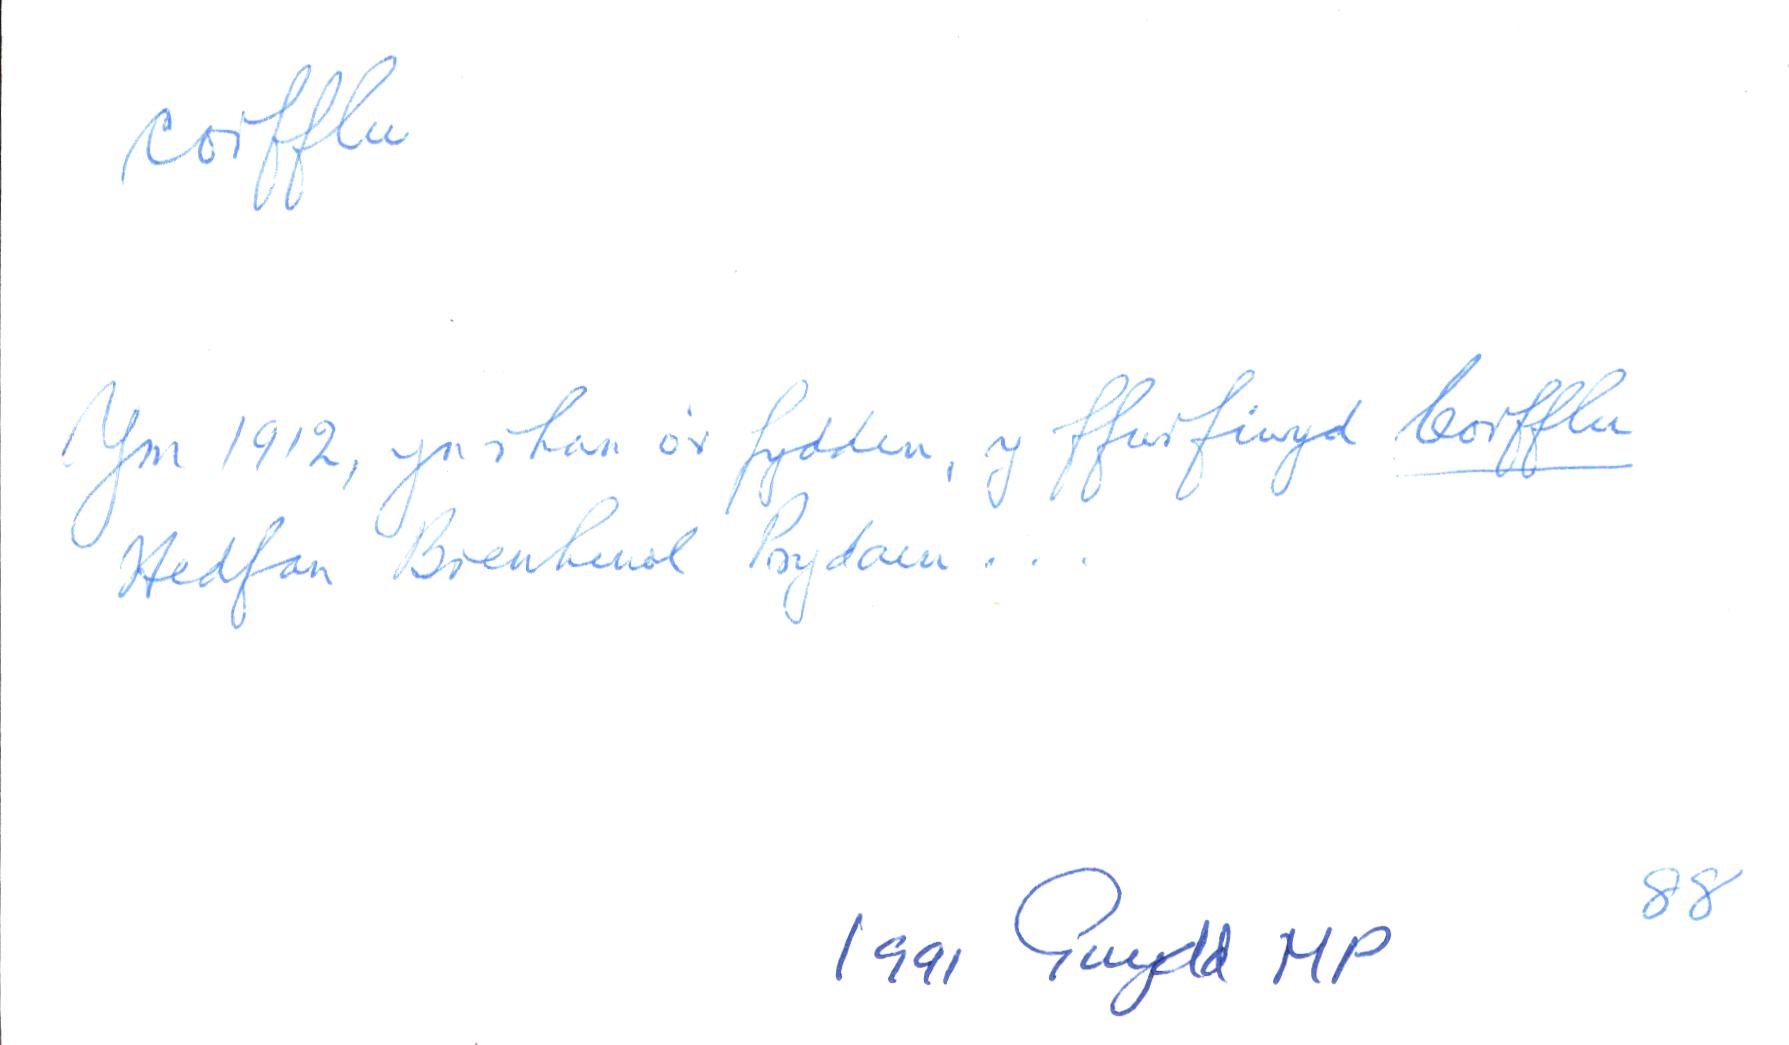 corfflu
Ym 1912, yn rhan o'r fyddin, y ffurfiwyd Corfflu
Hedfan Brenhinol Prydain...
88
1991 Gwydd MP